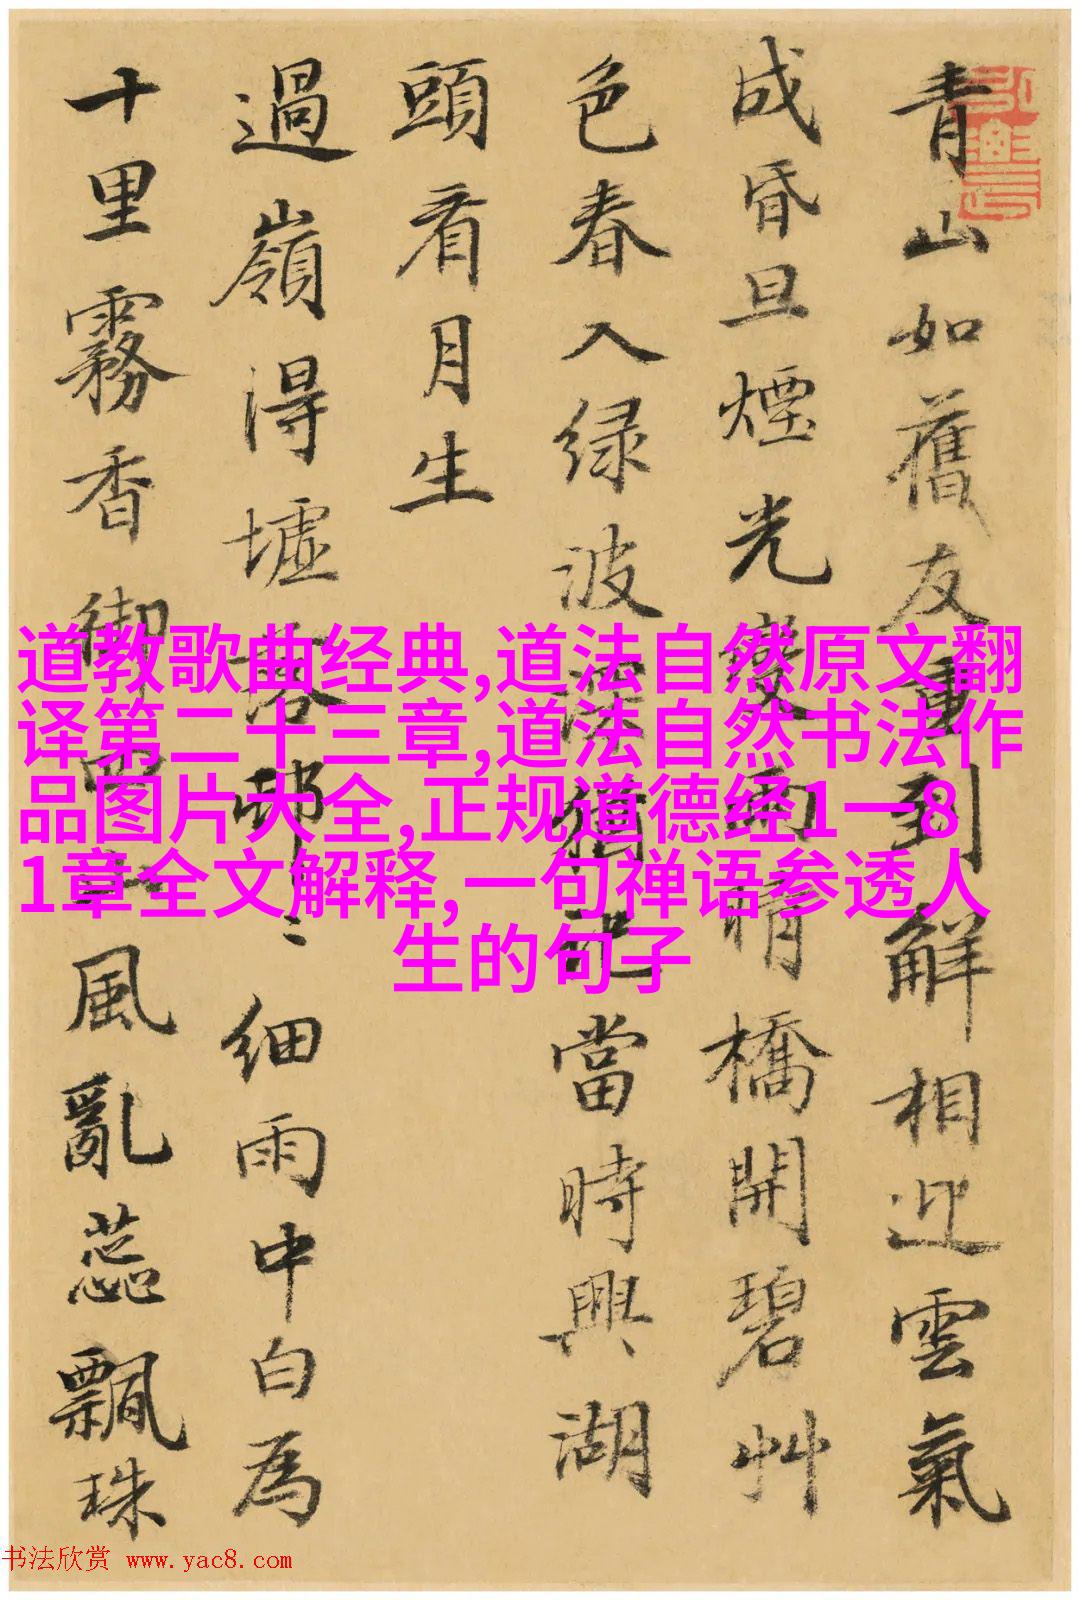 青山如舊友重到解相迎雲氣
成昏旦煙光變雨晴橋開碧艸
色春入绿波深猶記當時興湖
頭看月生
過嶺得墟落邨〻細雨中白為
十里霧香御四山風亂蕊飄珠
道教歌曲经典,道法自然原文翻
译第二十三章,道法自然书法作
品图片大全,正规道德经1一8
1章全文解释,一句禅语参透人
生的句子
书法欣赏 www.yac8.com